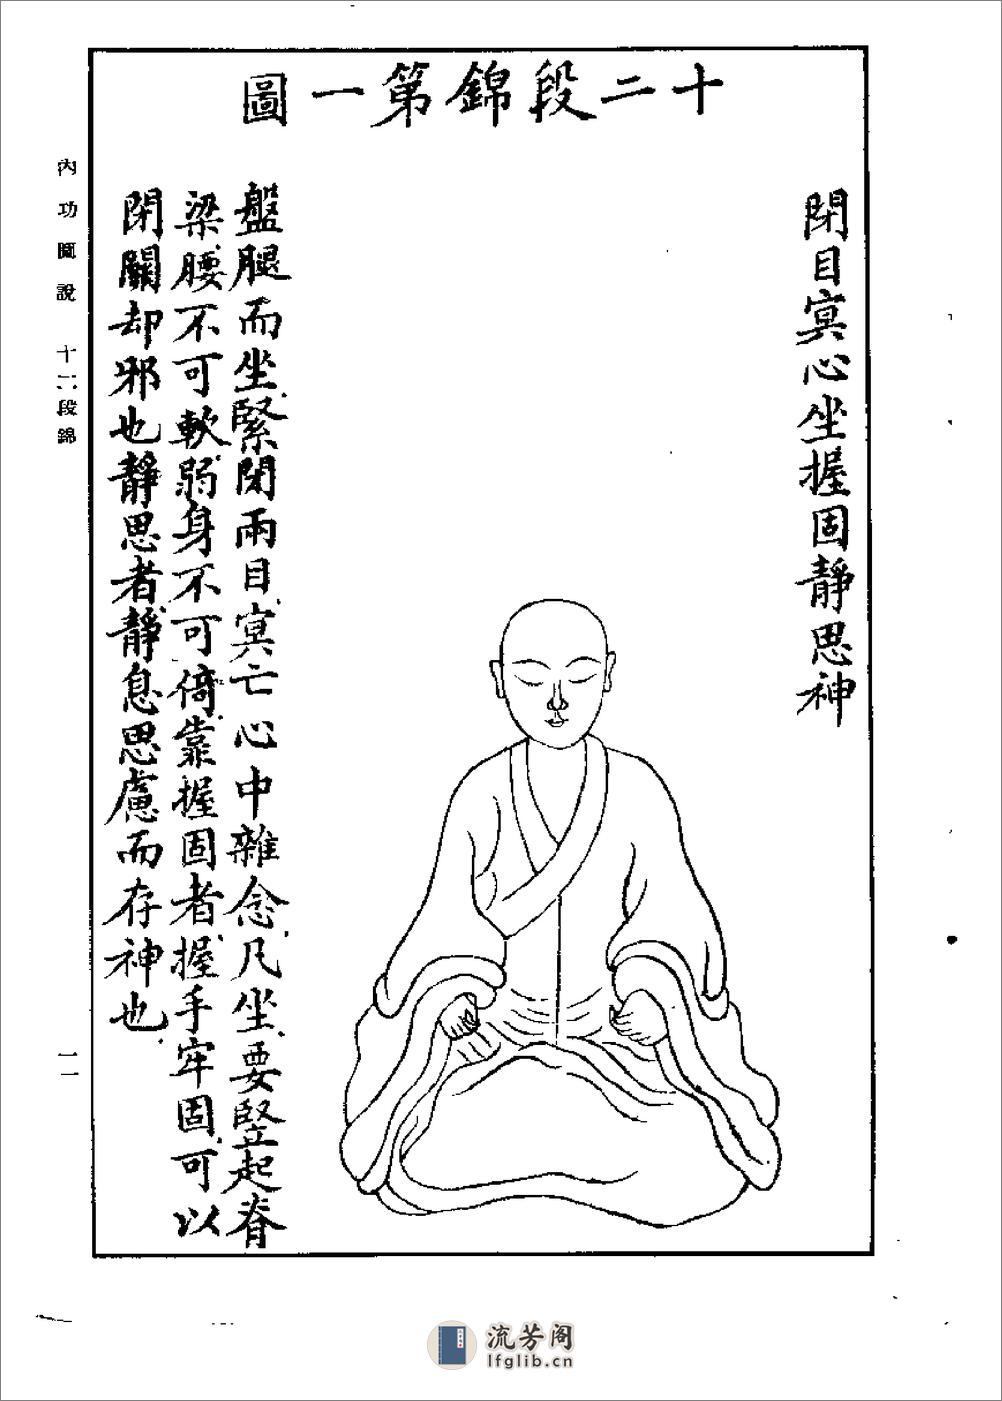 十二段錦第一圖
閉目冥心坐握固靜思神
盤腿而坐緊閉兩目冥亡心中雜念凡坐要竪起脊
梁腰不可軟弱身不可倚靠握固者握手牢固可以
閉關却邪也靜思者靜息思慮而存神也
內功圖說 十二段錦
一一
流芳阁
lfglib.cn